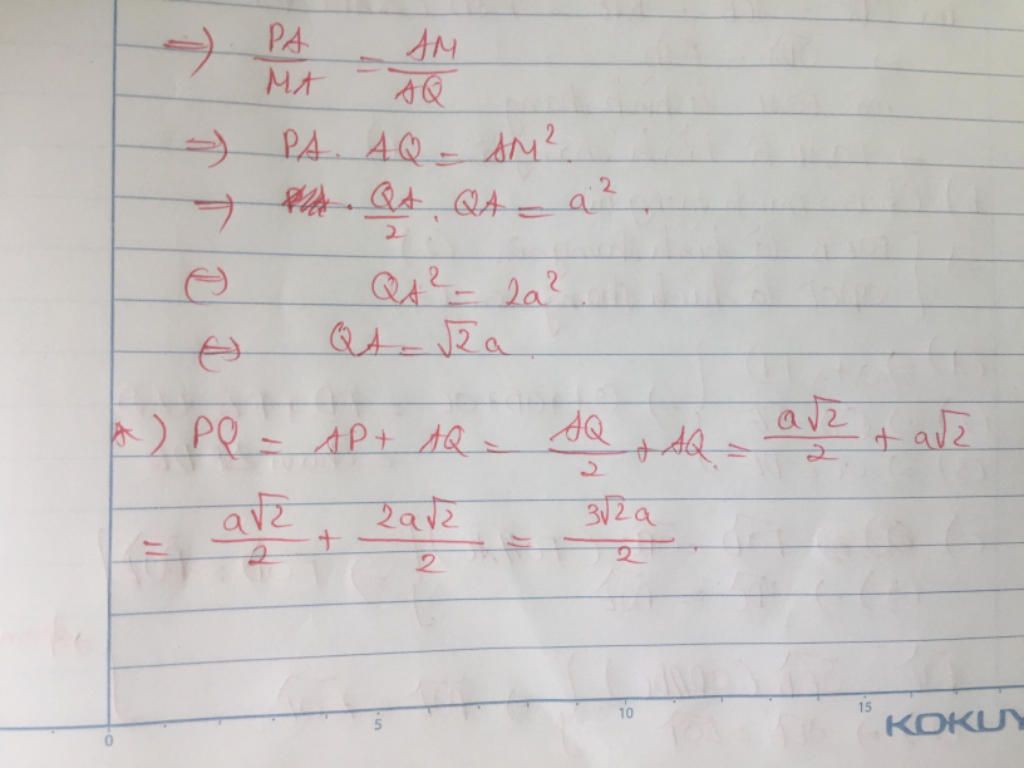 => PA/MA = AM/AQ
=> PA. AQ = AM².
=> . QA/2 . QA = a².
<=> QA² = 2a².
<=> QA = √2a.
*) PQ = AP + AQ = AQ/2 + AQ. = a√2/2 + a√2
= a√2/2 + 2a√2/2 = 3√2a/2.
0 5 10 15 KOKUY